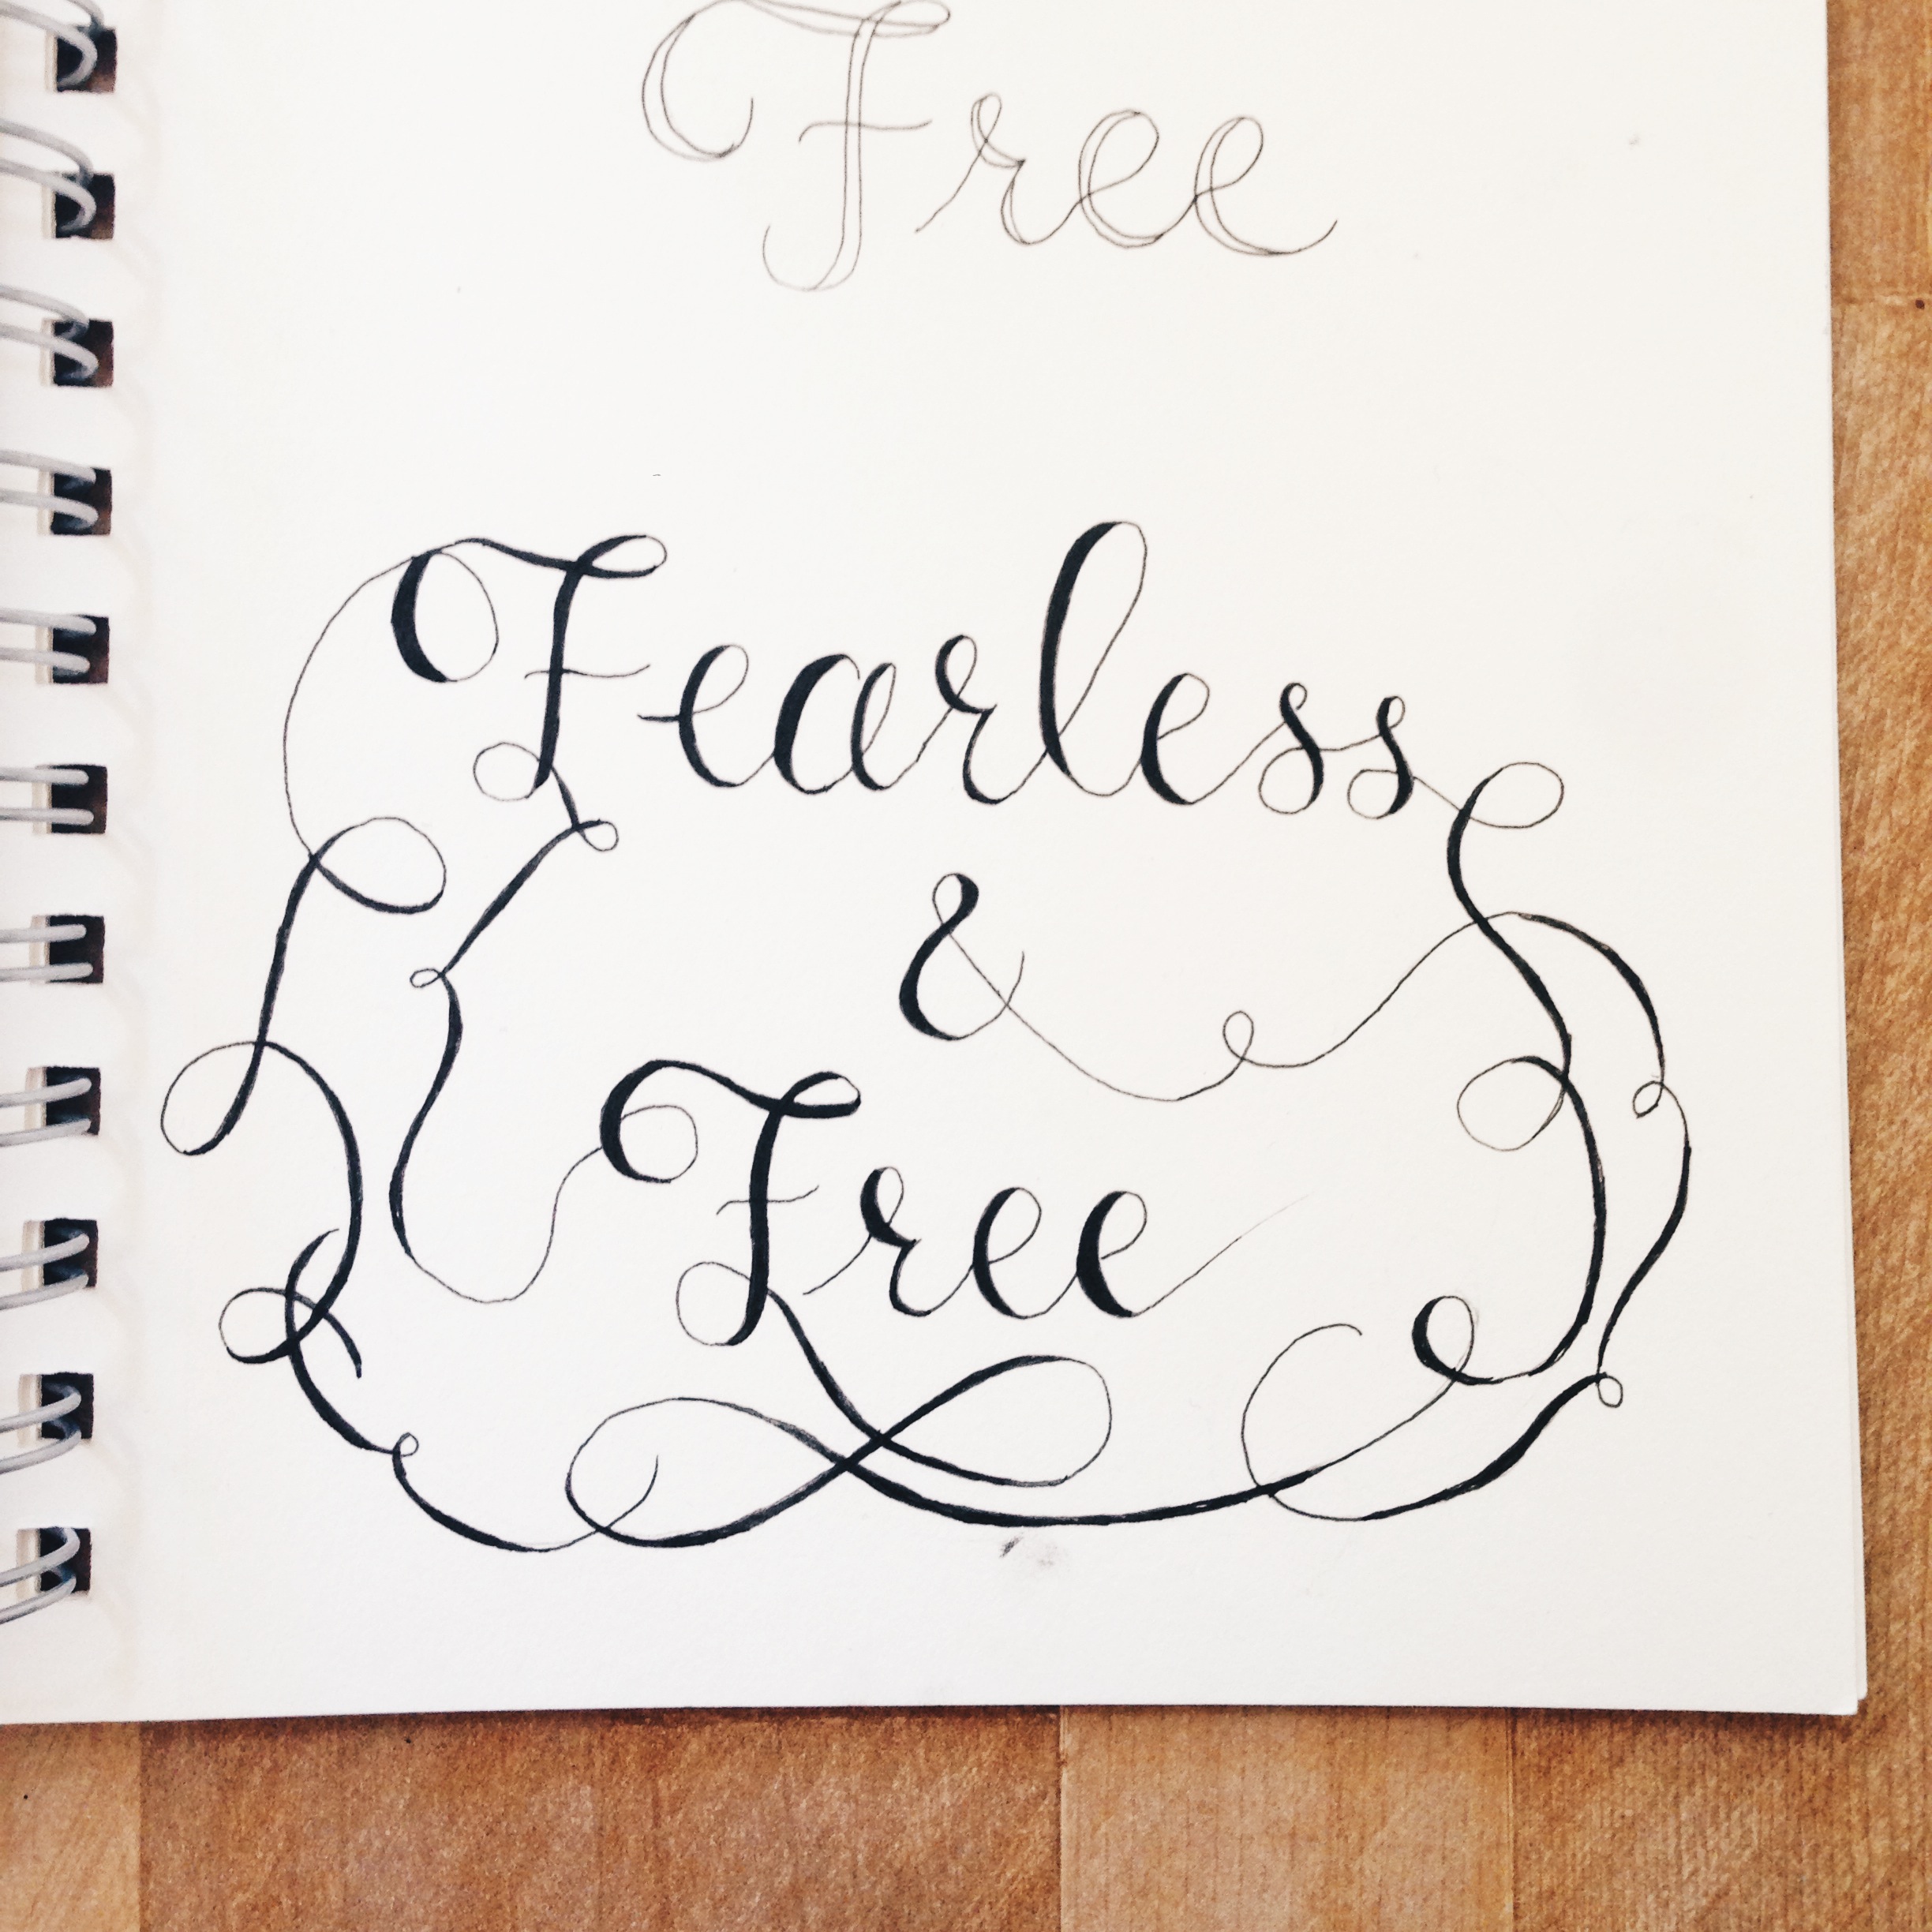 Free
Fearless
&
Free